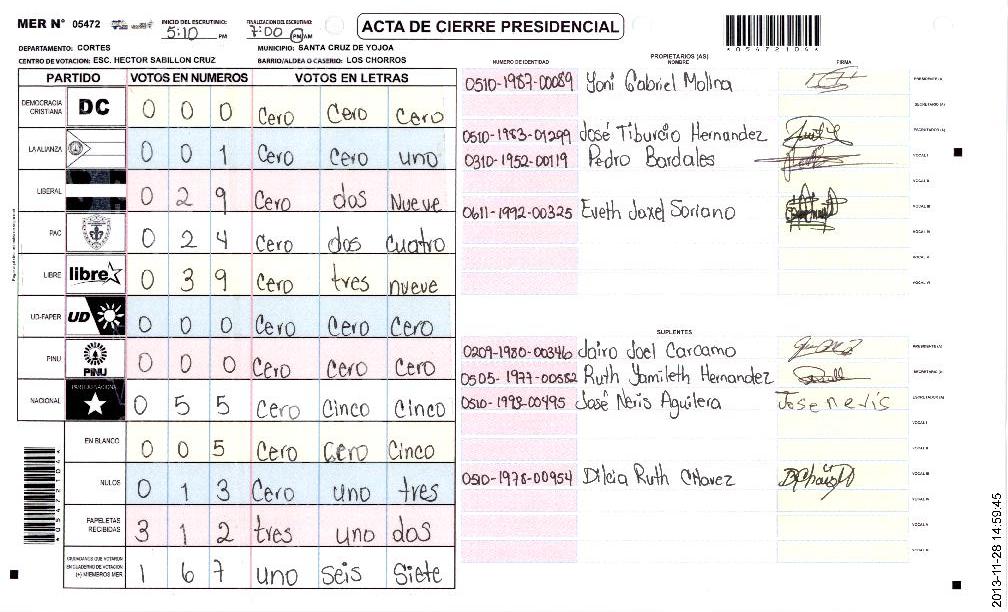 MER N° 05472
INICIO DEL ESCRUTINIO: 5:10 PM
FINALIZACION DEL ESCRUTINIO: 7:00 PM/AM
ACTA DE CIERRE PRESIDENCIAL
*05472104*
DEPARTAMENTO: CORTES
MUNICIPIO: SANTA CRUZ DE YOJOA
CENTRO DE VOTACION: ESC. HECTOR SABILLON CRUZ
BARRIO/ALDEA O CASERIO: LOS CHORROS
PARTIDO VOTOS EN NUMEROS VOTOS EN LETRAS
DEMOCRACIA CRISTIANA DC 0 0 0 Cero Cero Cero
LA ALIANZA 0 0 1 Cero Cero uno
LIBERAL 0 2 9 Cero dos Nueve
PAC 0 2 4 Cero dos cuatro
LIBRE libre 0 3 9 Cero tres nueve
UD-FAPER UD 0 0 0 Cero Cero Cero
PINU PINU 0 0 0 Cero Cero Cero
NACIONAL PARTIDO NACIONAL 0 5 5 Cero Cinco Cinco
EN BLANCO 0 0 5 Cero Cero Cinco
NULOS 0 1 3 Cero uno tres
PAPELETAS RECIBIDAS 3 1 2 tres uno dos
CIUDADANOS QUE VOTARON EN CUADERNO DE VOTACION (+) MIEMBROS MER 1 6 7 uno seis Siete
*05472104*
PROPIETARIOS (AS)
NUMERO DE IDENTIDAD NOMBRE FIRMA
0510-1987-00089 Yoni Gabriel Molina PRESIDENTE (A)
SECRETARIO (A)
0510-1983-01299 José Tiburcio Hernandez ESCRUTADOR (A)
0310-1952-00119 Pedro Bardales VOCAL I
VOCAL II
0611-1992-00325 Eveth Joxel Soriano VOCAL III
VOCAL IV
VOCAL V
VOCAL VI
SUPLENTES
0209-1980-00346 Jairo Joel Carcamo PRESIDENTE (A)
0505-1977-00552 Ruth Yamileth Hernandez SECRETARIO (A)
0510-1998-00495 José Neris Aguilera Jose neris ESCRUTADOR (A)
VOCAL I
VOCAL II
0510-1978-00954 Dilcia Ruth Chavez VOCAL III
VOCAL IV
VOCAL V
VOCAL VI
2013-11-28 14:59:45